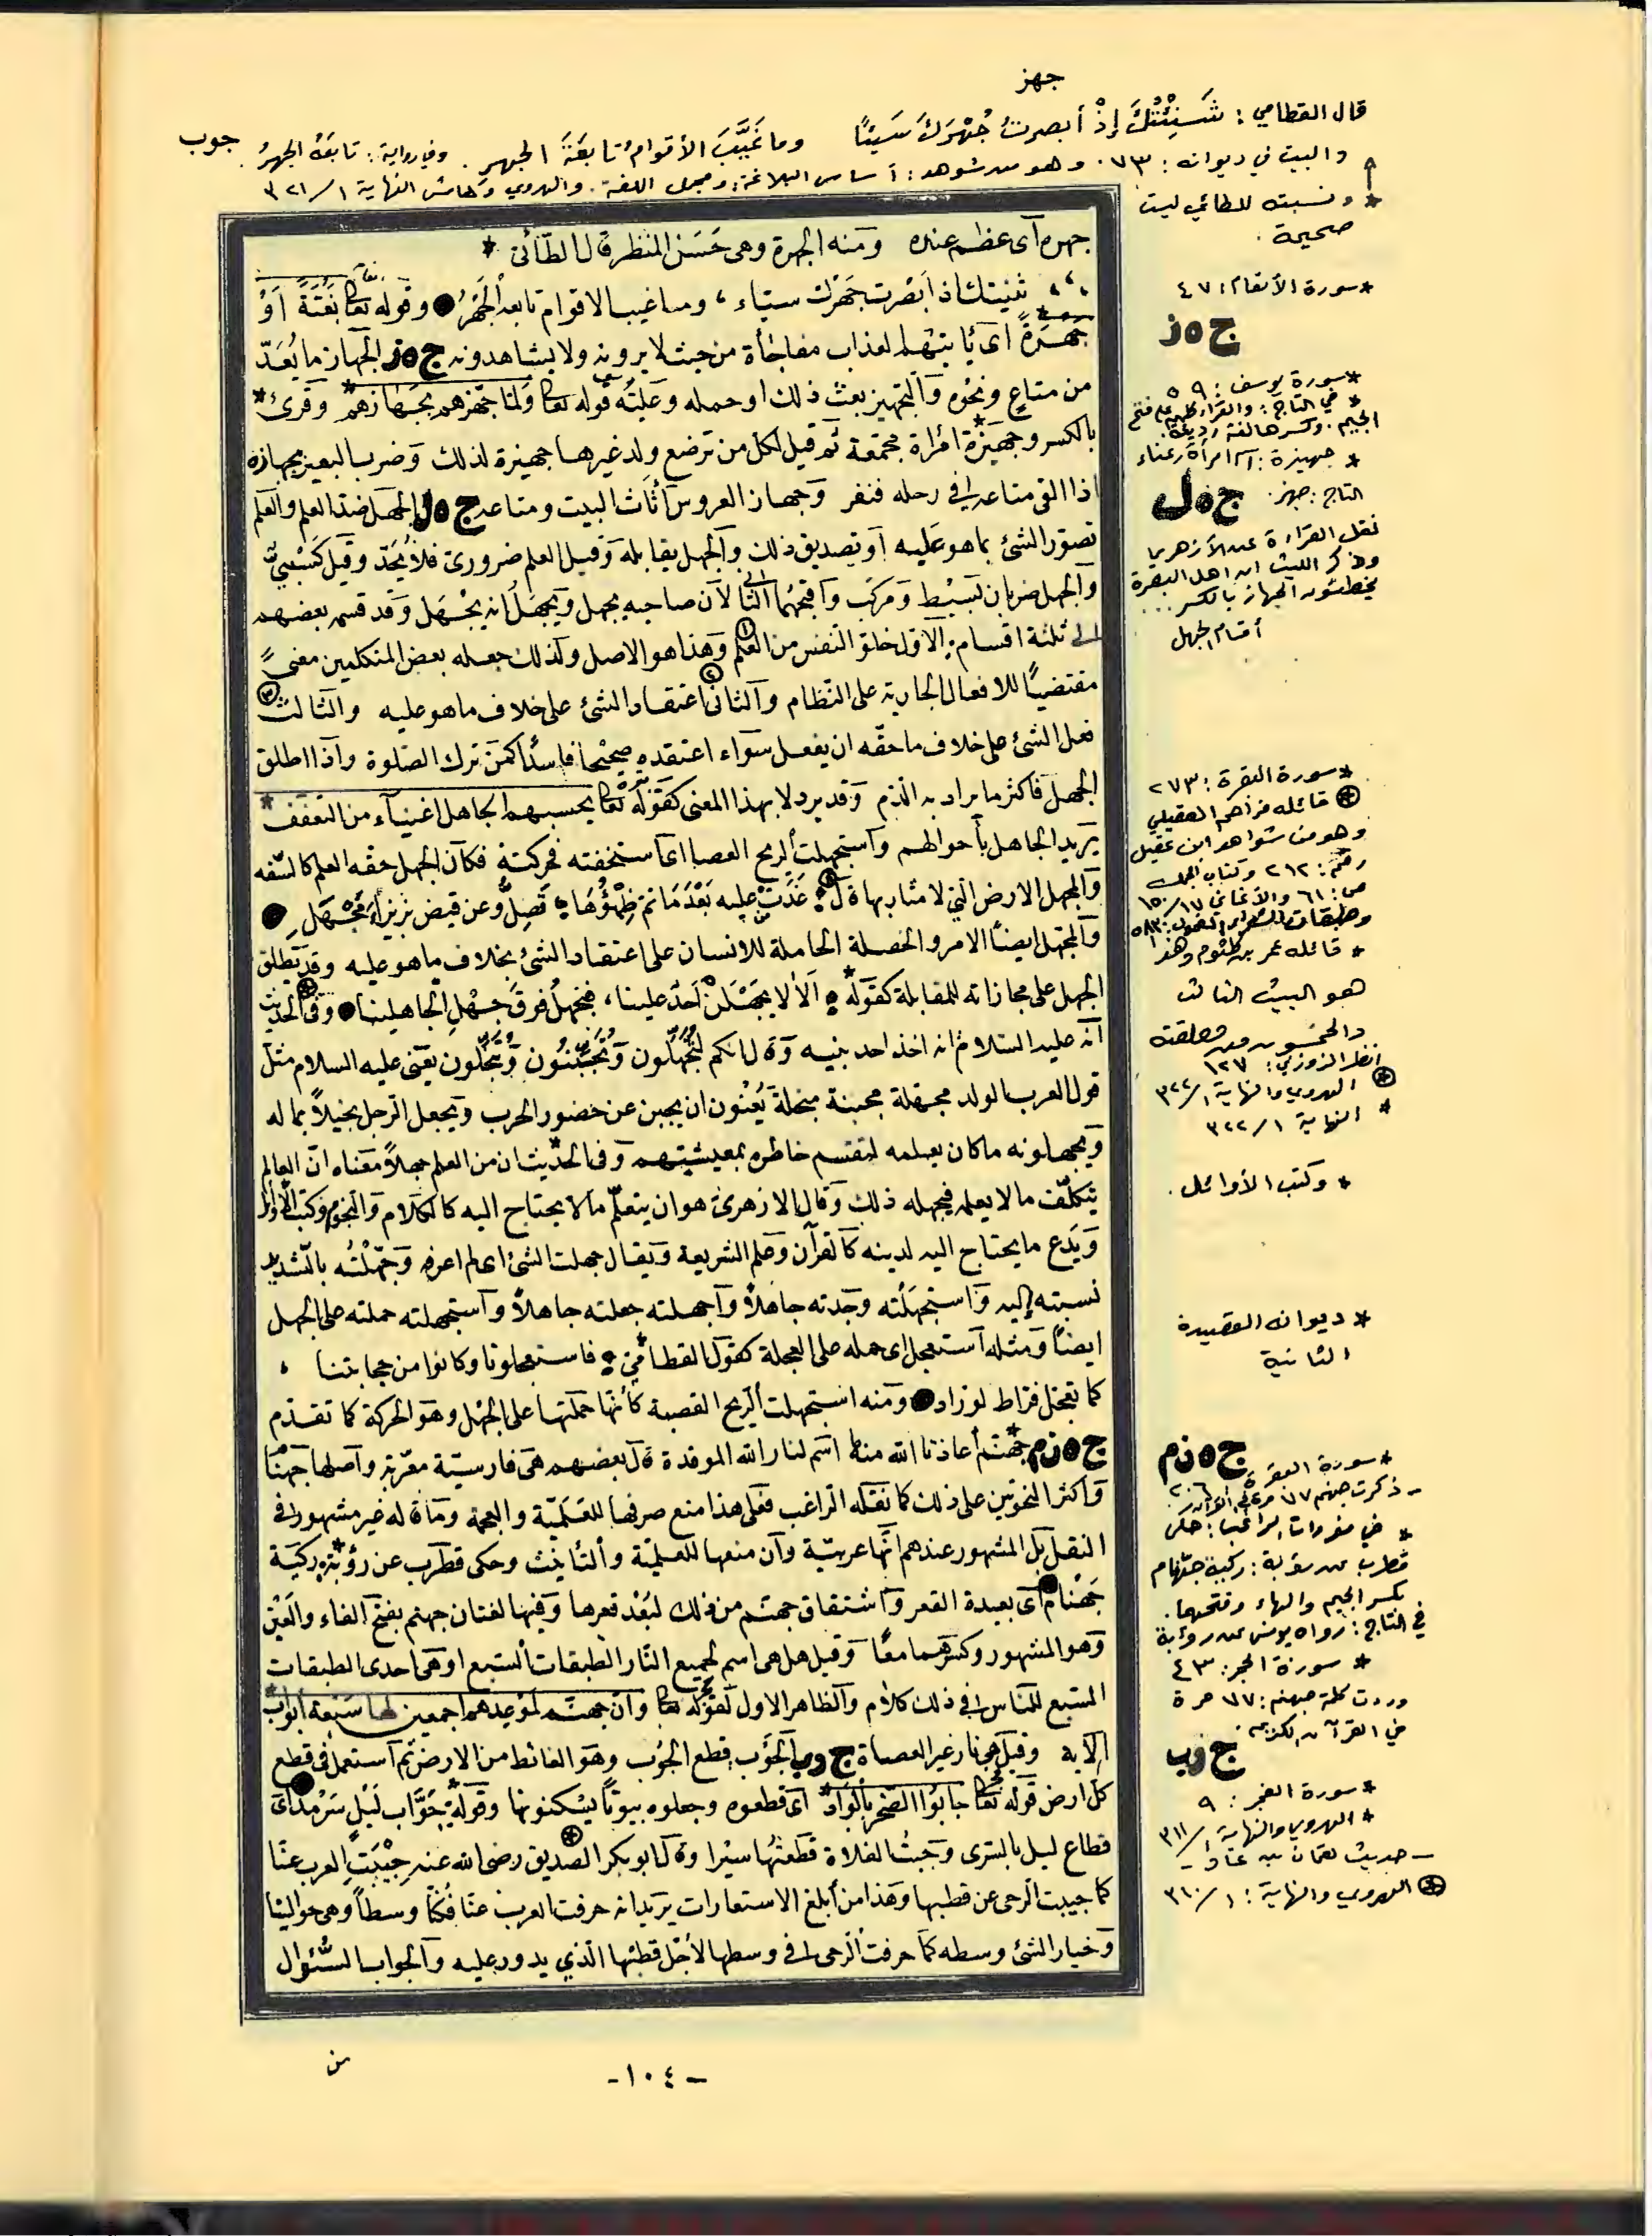 جهز
قال القطامي: شَنِئْتُكَ إِذْ أبصرتُ جُهْرَكَ سَيِّئًا وما غَيَّبَ الأقوامُ تابعَةَ الجهرِ. وفي رواية: تابعَهُ الجهرُ. جوب
والبيت في ديوانه: ٧٣. وهو من شواهد: أساس البلاغة، ومجمل اللغة. والهروي وهامش النهاية ١/٣٢١
* ونسبته للطائي ليست
صحيحة.
جهره أى عظم عنده ومنه الجهرة وهى حَسَن المنظر قال الطّائى *
شنيتك اذ ابصرت جهرك سيّاء، وما غيب الاقوام تابعه الجَهْرُ وقوله تعا بَغْتَةً اَوْ
جهْرَةً اى يأتيهم العذاب مفاجأة من حيث لا يرونه ولا يشاهدونه ج ه ز الجهاز ما يُعَدّ
من متاع ونحوه والتجهيز بعث ذلك او حمله وعليه قوله تعا ولما جهزهم بجهازهم وقرئ *
بالكسر وجهيزة امرأة محمقة ثم قيل لكل من ترضع ولد غيرها جهيزة لذلك وضرب البعير بجهازه
اذا القى متاعه فى رحله فنفر وجهاز العروس أثاث البيت ومتاعه ج ه ل الجهل ضد العلم والعلم
تصور الشئ بما هو عليه او تصديق ذلك والجهل يقابله وقيل العلم ضرورى فلا يُحَدّ وقيل كَسْبِىّ
والجهل ضربان بسيط ومركب وأقبحهما الثانى لان صاحبه يجهل ويجهل انه يجهل وقد قسمه بعضهم
الى ثلثة اقسام الاول خلق النفس من العلم وهذا هو الاصل ولذلك جعله بعض المتكلمين معنىً
مقتضيًا للافعال الجارية على النظام والثانى اعتقاد الشئ على خلاف ما هو عليه والثالث
فعل الشئ على خلاف ما حقه ان يفعل سواء اعتقده صحيحا فاسدا كمن ترك الصلوة واذا اطلق
الجهل فاكثر ما يراد به الذم وقد يرد لا بهذا المعنى كقوله تعا يحسبهم الجاهل اغنياء من التعفف *
يريد الجاهل بأحوالهم واستجهلت الريح الغصا اى استخفته فحركته فكأن الجهل حقه العلم كالسفه
والمجهل الارض التى لا منار بها قال غَدَتْ عليه بَعْدَمَا تم ظِمْؤُهَا تَصِلُّ وعن قيض بزيزاء مَجْهَلِ
والمجهل ايضًا الامر والخصلة الحاملة للانسان على اعتقاد الشئ بخلاف ما هو عليه وقد يطلق
الجهل على مجازاته للمقابلة كقوله * ألا لا يجهلنْ أحد علينا، فنجهلُ فوق جهْلِ الجاهلينا وفى الحديث
أنه عليه السلام انه اخذ احد بنيه وقال انكم لتُجَهِّلُون وتُجَبِّنُون وتُبَخِّلُون يعنى عليه السلام مثل
قول العرب الولد مجهلة مجبنة مبخلة يعنون ان يجبن عن حضور الحرب ويجعل الرجل بخيلاً بماله
ويجهلونه ما كان يعلمه لتقسم خاطره بمعيشتهم وفى الحديث ان من العلم جهلاً معناه ان العالم
يتكلف ما لا يعلم فيجهله ذلك وقال الازهرى هو ان يتعلم ما لا يحتاج اليه كالكلام والنجوم وكتب الاوائل
ويدع ما يحتاج اليه لدينه كالقرآن وعلم الشريعة ويقال جهلت الشئ اى لم اعرفه وجَهَّلْتُه بالتشديد
نسبته إليه واستجهلته وجدته جاهلاً وأجهلته جعلته جاهلاً واستجهلته حملته على الجهل
ايضًا ومثله استعجل اى حمله على العجلة كقول القطامى * فاستعجلونا وكانوا من صحابتنا ،
كما تعجل فراط لوراد ومنه استجهلت الريح القصبة كأنها حملتها على الجهل وهو الحركة كما تقدم
ج ه ن م جهنم أعاذنا الله منها اسم لنار الله الموقدة قال بعضهم هى فارسية معربة وأصلها جهنّا
وأكثر النحويين على ذلك كما نقله الراغب فعلى هذا منع صرفها للعلمية والعجمة وما قاله غير مشهور فى
النقل بل المشهور عندهم أنها عربية وأن منعها للعلمية والتأنيث وحكى قطرب عن رؤبة ركية
جَهْنام أى بعيدة القعر واشتقاق جهنم من ذلك لبُعْد قعرها وفيها لغتان جهنم بفتح الفاء والعين
وهو المشهور وكسرهما معًا وقيل هل هى اسم لجميع النار الطبقات السبع او هى احدى الطبقات
السبع للناس فى ذلك كلام والظاهر الاول لقوله تعا وان جهنم لموعدهم اجمعين لها سبعة ابواب *
الآية وقيل هى نار غير العصاة ج و ب الجَوْب قطع الجَوْب وهو الغائط من الارض ثم استعمل فى قطع
كل ارض قوله تعا جابوا الصخر بالواد اى قطعوه وجعلوه بيوتًا يسكنونها وقوله * جَوَّاب لَيْلٍ سَرْمَد اى
قطاع ليل بالسرى وجبتُ الفلاة قطعتُها سيْرا وقال ابو بكر الصديق رضى الله عنه جِيْبَتِ العرب عنّا
كما جيبت الرحى عن قطبها وهذا من أبلغ الاستعارات يريد انه خرقت العرب عنا فكنّا وسطًا وهى حوالينا
وخيار الشئ وسطه كما خرقت الرحى فى وسطها لأجل قطبها الذي يدور عليه والجواب السُّؤال
من
* سورة الأنعام: ٤٧
ج ه ز
* سورة يوسف: ٥٩
* في التاج: والقراء كلهم على فتح
الجيم. وكسرها لغة رديئة.
* جهيزة: اسم امرأة رعناء
التاج: جهز.
ج ه ل
نقل القراءة عن الأزهري
وذكر الليث ان اهل البصرة
يخطئون الجهاز بالكسر...
أقسام الجهل
* سورة البقرة: ٢٧٣
قائله مزاحم العقيلي
وهو من شواهد ابن عقيل
رقم: ٢١٢ وكتاب الجمل
ص: ٦١ والأغاني ١٧/١٥٠
وطبقات الشعراء الفحول: ٥٨٣
* قائله عمر بن كلثوم وهذا
هو البيت الثالث
والخمسون من معلقته
انظر الزوزني: ١٢٧
الهروي والنهاية ١/٣٢٢
* النهاية ١/٣٢٢
* وكتب الأوائل.
* ديوانه القصيدة
الثانية
ج ه ن م
* سورة البقرة ٢٠٦
- ذكرت جهنم ٧٧ مرة في القرآن
* في مفردات الراغب: حكى
قطرب عن رؤبة: ركية جهنام
بكسر الجيم والهاء وفتحهما.
في التاج: رواه يونس عن رؤبة
* سورة الحجر: ٤٣
وردت كلمة جهنم: ٧٧ مرة
في القرآن الكريم.
ج و ب
* سورة الفجر: ٩
* الهروي والنهاية ١/٣١١
- حديث لقمان بن عاد -
الهروي والنهاية: ١/٣١٠
- ١٠٤ -